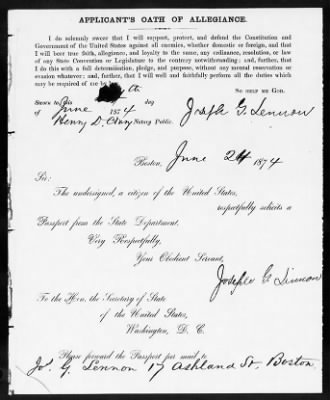 APPLICANT'S OATH OF ALLEGIANCE.
I do solemnly swear that I will support, protect, and defend the Constitution and
Government of the United States against all enemies, whether domestic or foreign, and that
I will bear true faith, allegiance, and loyalty to the same, any ordinance, resolution, or law
of any State Convention or Legislature to the contrary notwithstanding; and, further, that
I do this with a full determination, pledge, and purpose, without any mental reservation or
evasion whatsoever: and, further, that I will well and faithfully perform all the duties which
may be required of me by law. SO HELP ME GOD.
Sworn to this th day
of June 1874 Joseph G. Lennon
Henry D. Notary Public.
Boston, June 24 1874
Sir:
The undersigned, a citizen of the United States,
respectfully solicits a
Passport from the State Department.
Very Respectfully,
Your Obedient Servant,
Joseph G Linnon
To the Hon. the Secretary of State
of the United States,
Washington, D. C.
Please forward the Passport per mail to
Jos. G. Lennon 17 Ashland St. Boston